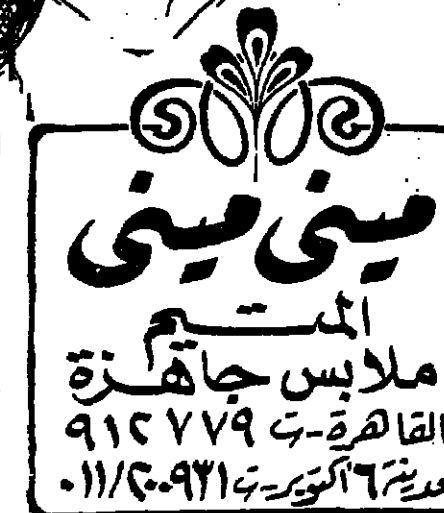 مينى مينى
المتيم
ملابس جاهزة
القاهرة - ت ٩١٢٧٧٩
مدينة ٦ أكتوبر - ت ٠١١/٢٠٠٩٣١